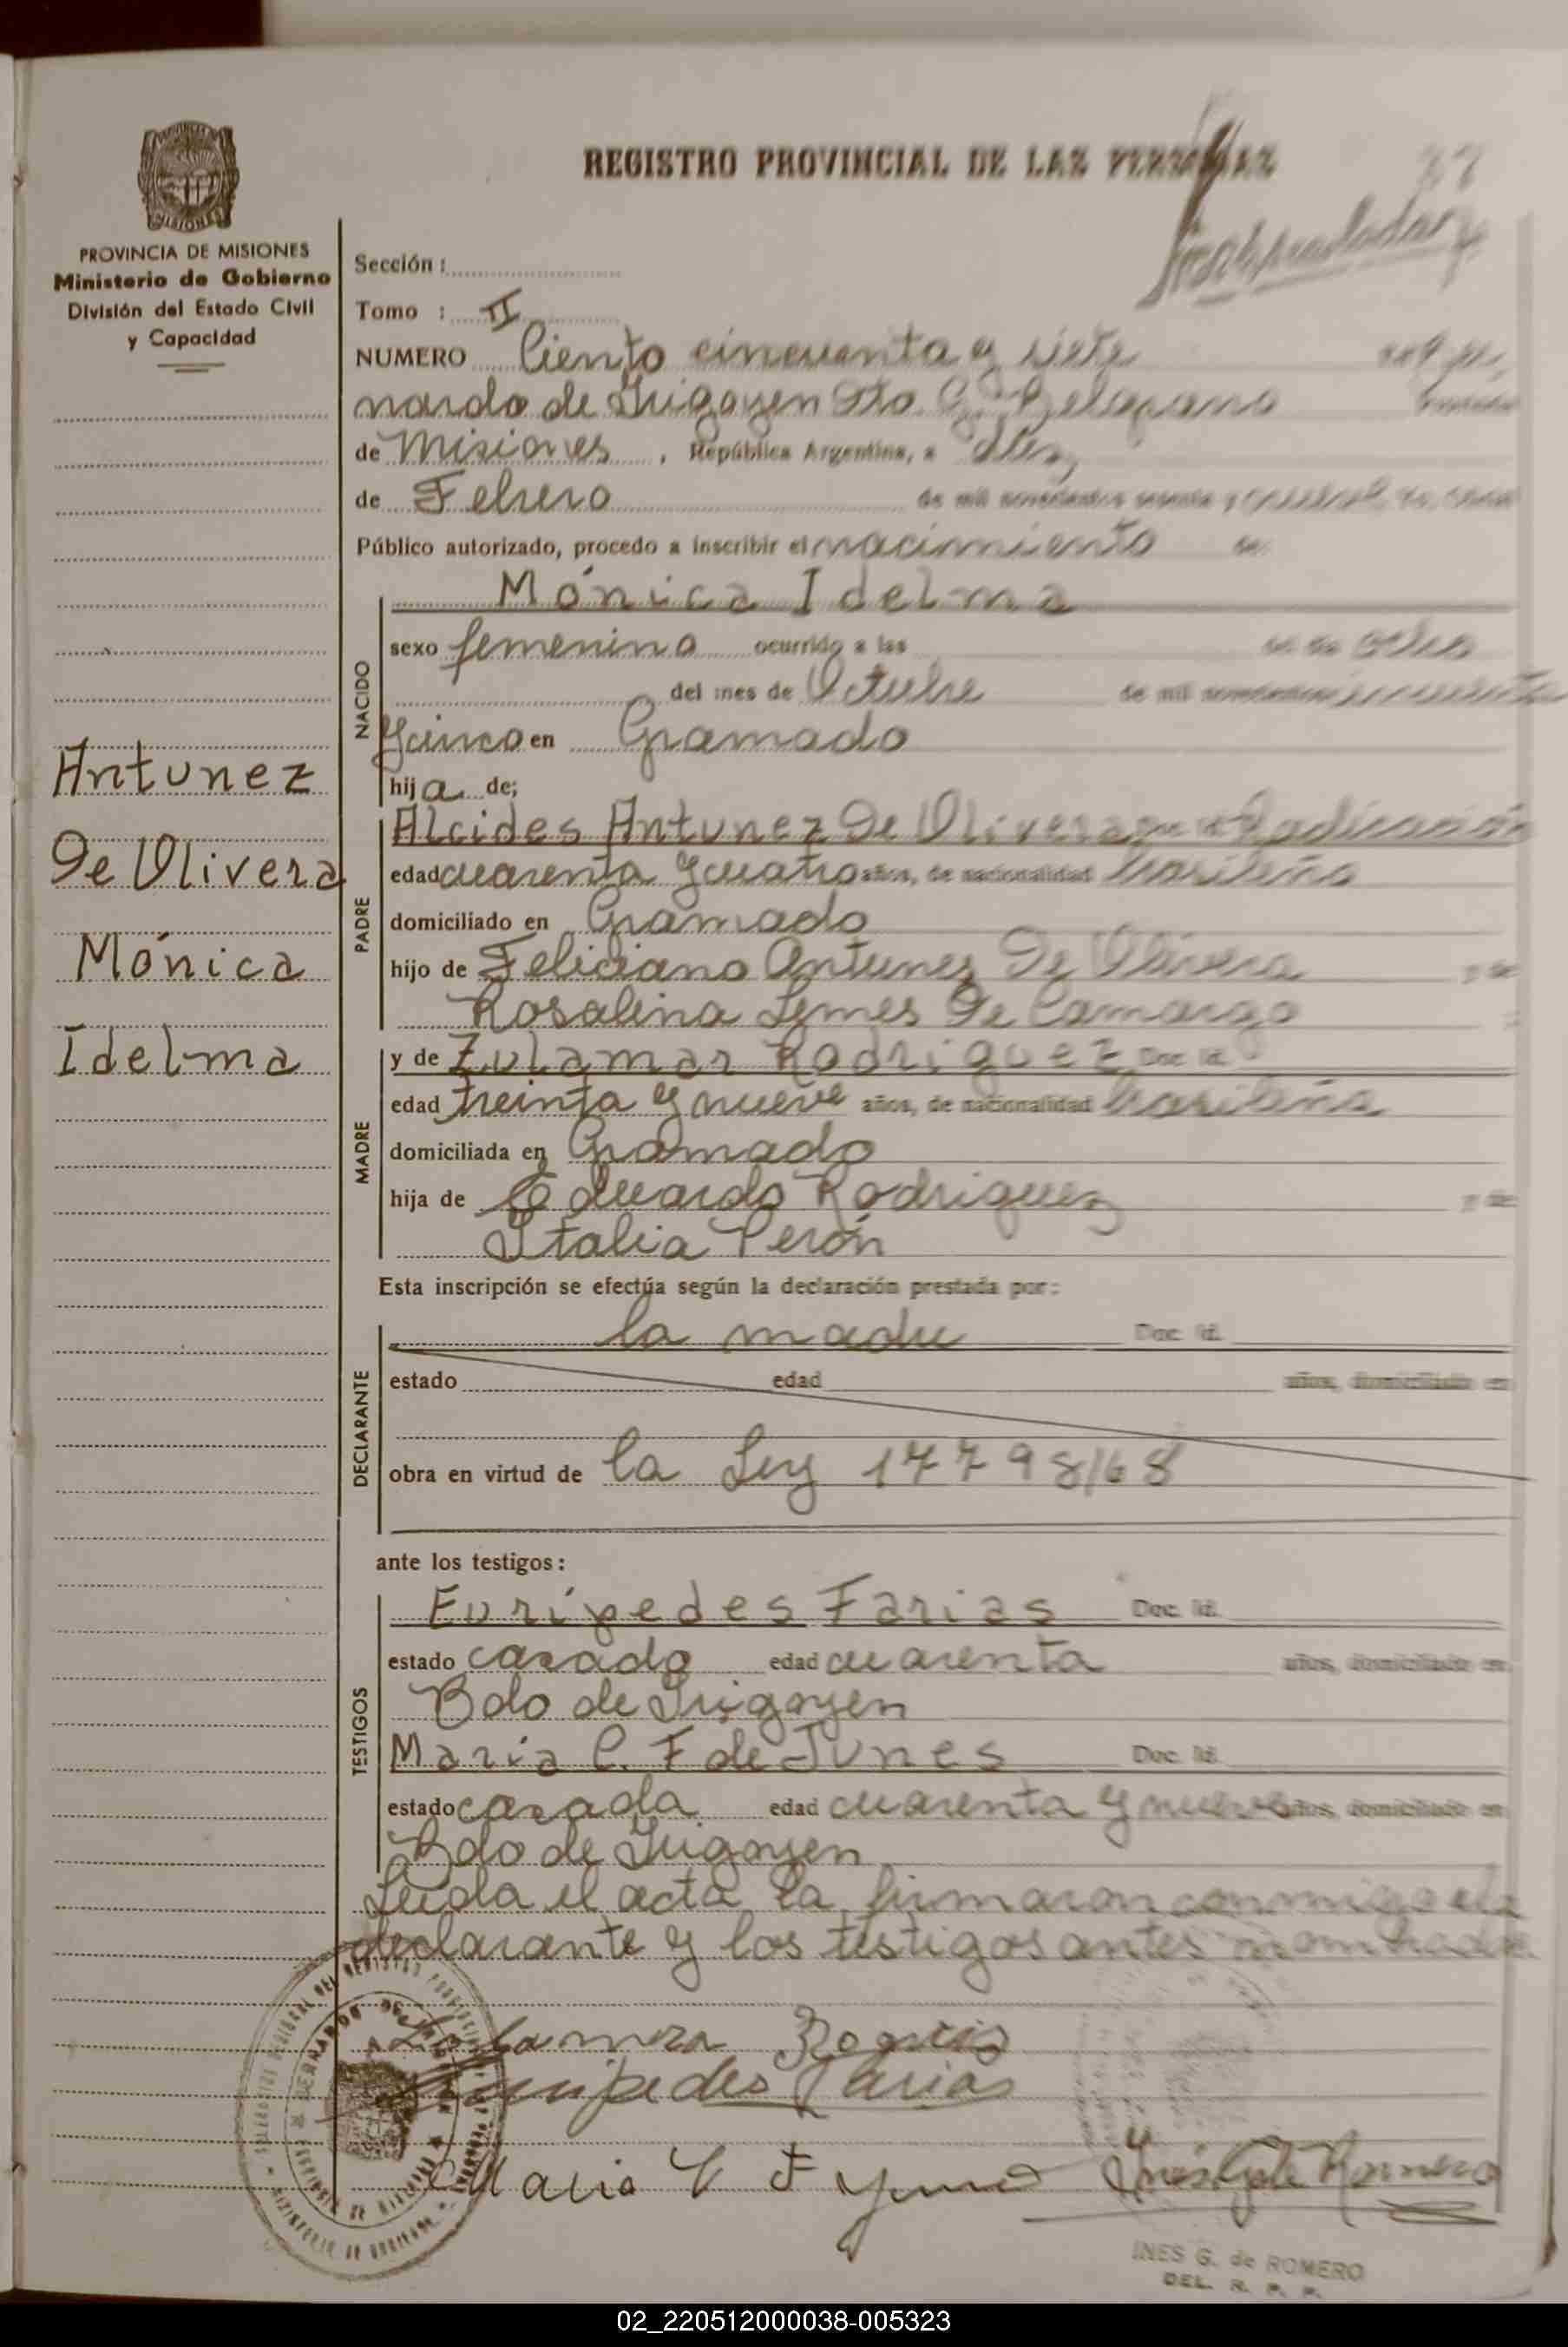 REGISTRO PROVINCIAL DE LAS PERSONAS
37
PROVINCIA DE MISIONES
Ministerio de Gobierno
División del Estado Civil
y Capacidad
Sección :
Tomo : II
NUMERO Ciento cincuenta y siete
nardo de Irigoyen Dto. G. Belgrano
de Misiones , República Argentina, a diez
de Febrero de mil novecientos sesenta y
Público autorizado, procedo a inscribir el nacimiento de:
Mónica Idelma
sexo femenino ocurrido a las ocho
del mes de Octubre de mil novecientos cincuenta
y cinco en Gramado
NACIDO
hija de;
Alcides Antunez De Olivera Doc. Id. Radicación
edad cuarenta y cuatro años, de nacionalidad brasileña
domiciliado en Gramado
hijo de Feliciano Antunez De Olivera y de
Rosalina Lemes De Camargo
PADRE
Antunez
De Olivera
Mónica
Idelma
y de Zulamar Rodriguez Doc. Id.
edad treinta y nueve años, de nacionalidad brasileña
domiciliada en Gramado
hija de Eduardo Rodriguez y de
Italia Perón
MADRE
Esta inscripción se efectúa según la declaración prestada por:
la madre Doc. Id.
estado edad años, domiciliado en
obra en virtud de la Ley 17798/68
DECLARANTE
ante los testigos:
Eurípedes Farias Doc. Id.
estado casado edad cuarenta años, domiciliado en
Bdo de Irigoyen
María C. F de Junes Doc. Id.
estado casada edad cuarenta y nueve años, domiciliado en
Bdo de Irigoyen
TESTIGOS
Leída el acta la firmaron conmigo la
declarante y los testigos antes nombrados
Euripedes Farias
Maria C F
Inés G de Romero
INES G. de ROMERO
DEL. R. P. P.
02_220512000038-005323